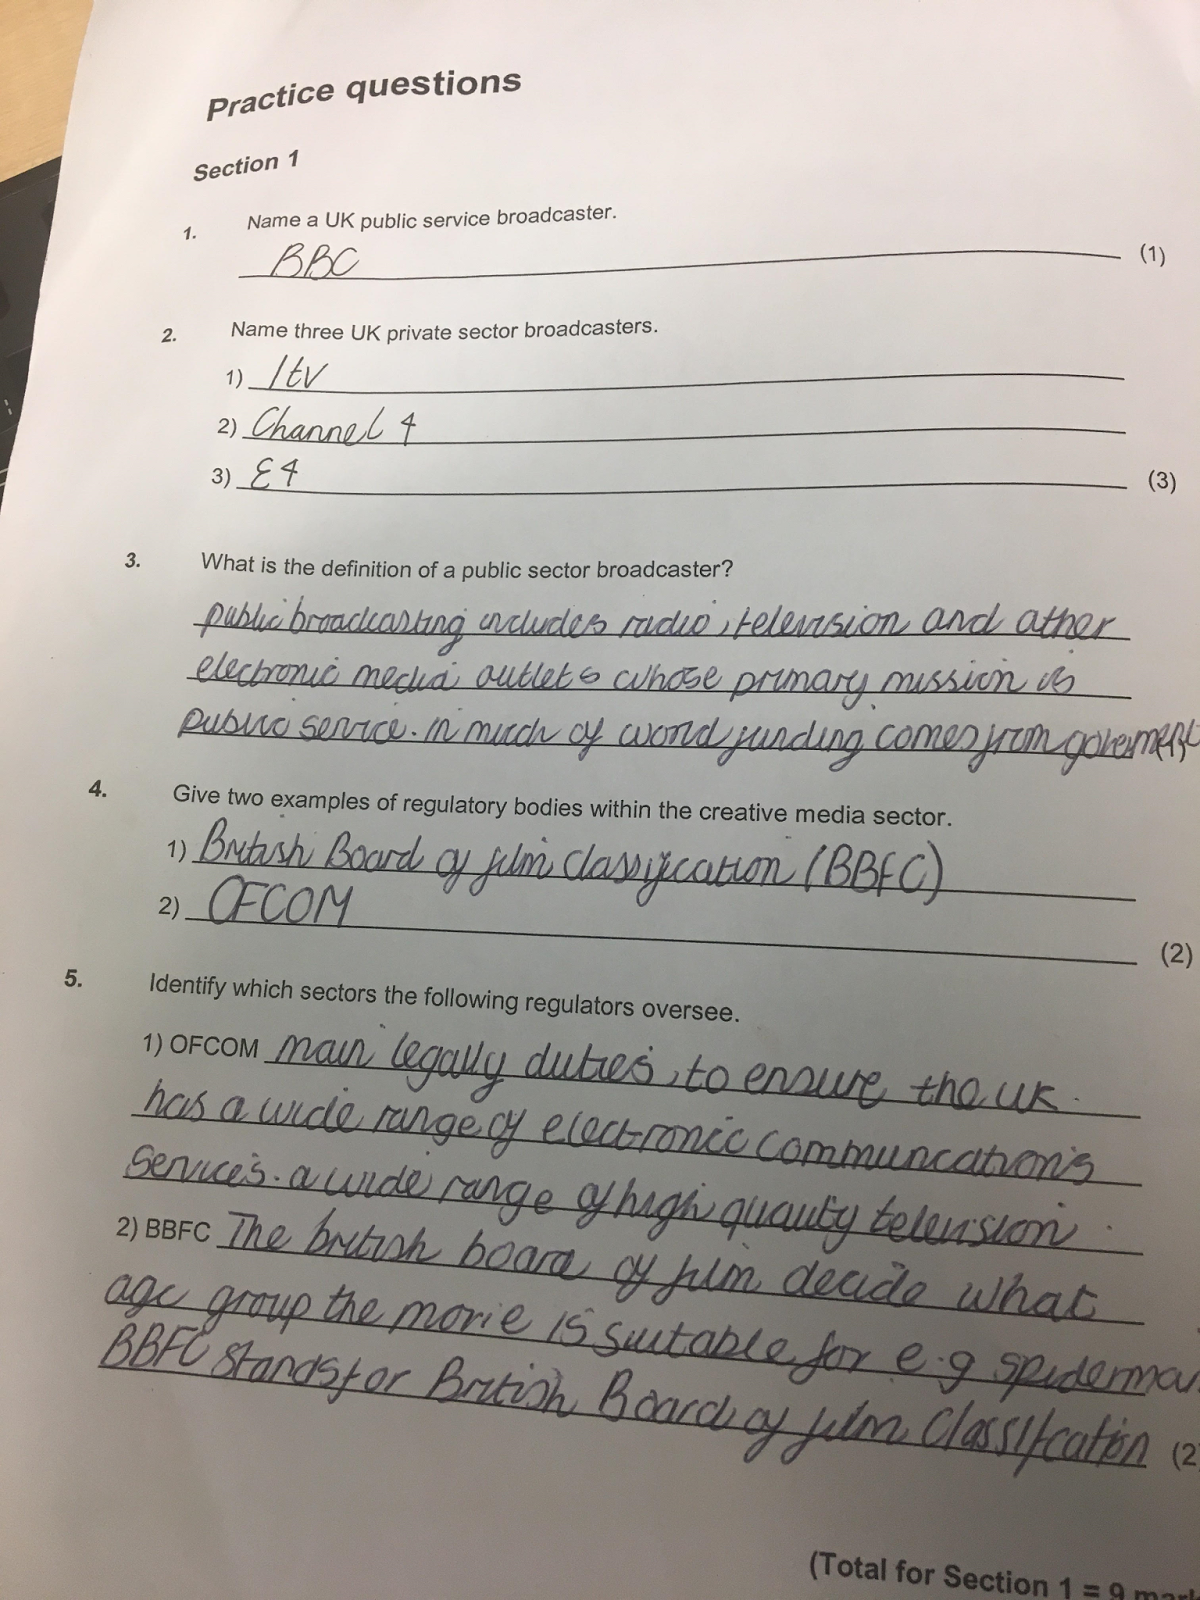 Practice questions
Section 1
1. Name a UK public service broadcaster.
BBC (1)
2. Name three UK private sector broadcasters.
1) Itv
2) Channel 4
3) E4 (3)
3. What is the definition of a public sector broadcaster?
public broadcasting includes radio, television and other
electronic media outlets whose primary mission is
public service. in much of world funding comes from
4. Give two examples of regulatory bodies within the creative media sector.
1) British Board of film classification (BBFC)
2) OFCOM (2)
5. Identify which sectors the following regulators oversee.
1) OFCOM main legally duties, to ensure the UK
has a wide range of electronic communcations
services. a wide range of high quality television
2) BBFC The british board of film decide what
age group the movie is suitable for e.g spiderman
BBFC stands for British Board of film Classifcation (2
(Total for Section 1 = 9 mark